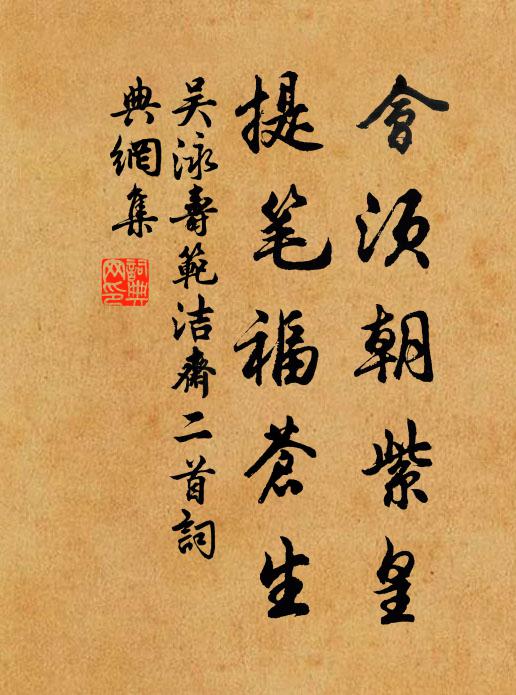 會須朝紫皇
提笔福蒼生
吴泳壽範洁齋二首詞
典網集
詞典
网印